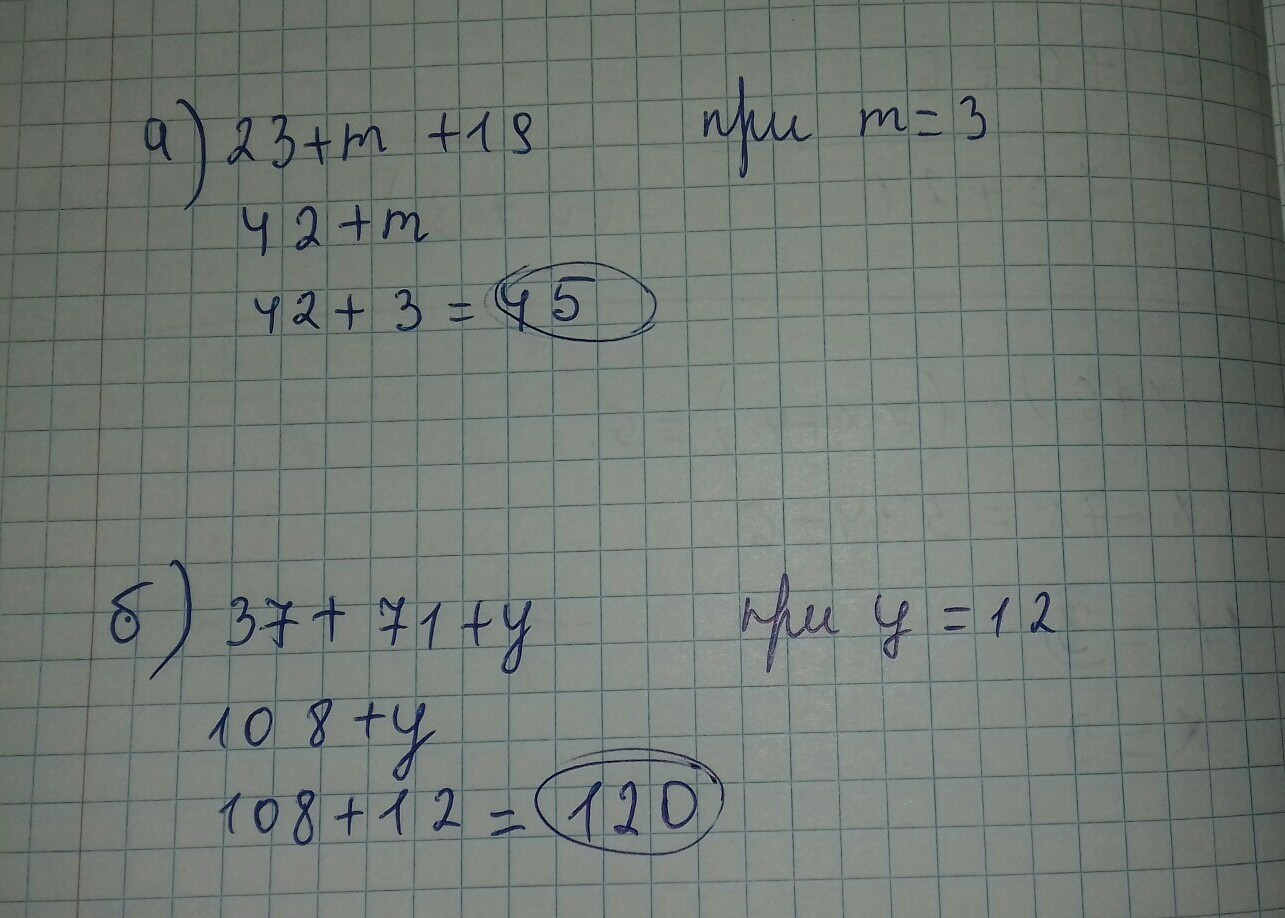 а) 23+m +19 при m=3
42+m
42+3=45
б) 37+71+y при y=12
108+y
108+12=120